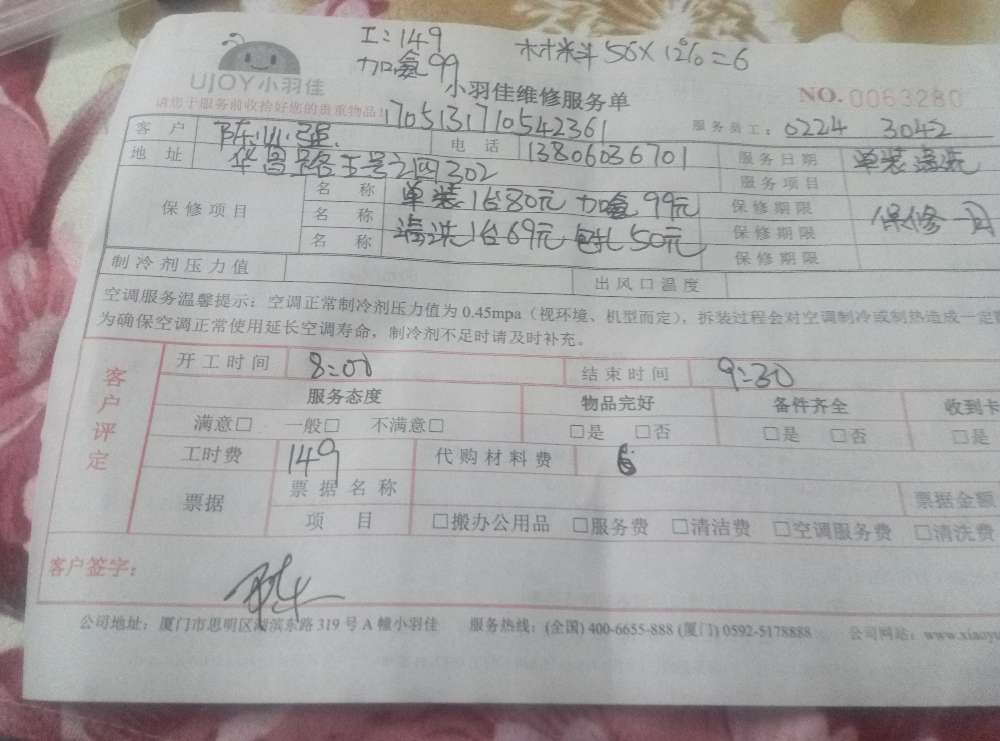 工:149
材料 50×12%=6
加氨99
UJOY小羽佳
小羽佳维修服务单
NO. 0063280
请您于服务前收拾好您的贵重物品!
1705131710542361
服务员工: 0224 3042
客户
电话 13806036701
服务日期 单装清洗
地址 华昌路五号之四302
服务项目
保修项目
名称 单装1台80元 加氨99元
保修期限 保修一月
名称 清洗1台69元 50元
保修期限
名称
保修期限
制冷剂压力值
出风口温度
空调服务温馨提示: 空调正常制冷剂压力值为 0.45mpa(视环境、机型而定), 拆装过程会对空调制冷或制热造成一定
为确保空调正常使用延长空调寿命, 制冷剂不足时请及时补充。
客户评定
开工时间 8:00
结束时间 9:30
服务态度 物品完好 备件齐全 收到卡
满意□ 一般□ 不满意□ □是 □否 □是 □否 □是
工时费 149 代购材料费 6
票据
票据名称 票据金额
项目 □搬办公用品 □服务费 □清洁费 □空调服务费 □清洗费
客户签字:
公司地址: 厦门市思明区湖滨东路 319 号 A 幢小羽佳 服务热线: (全国) 400-6655-888 (厦门) 0592-5178888 公司网站: www.xiaoyu